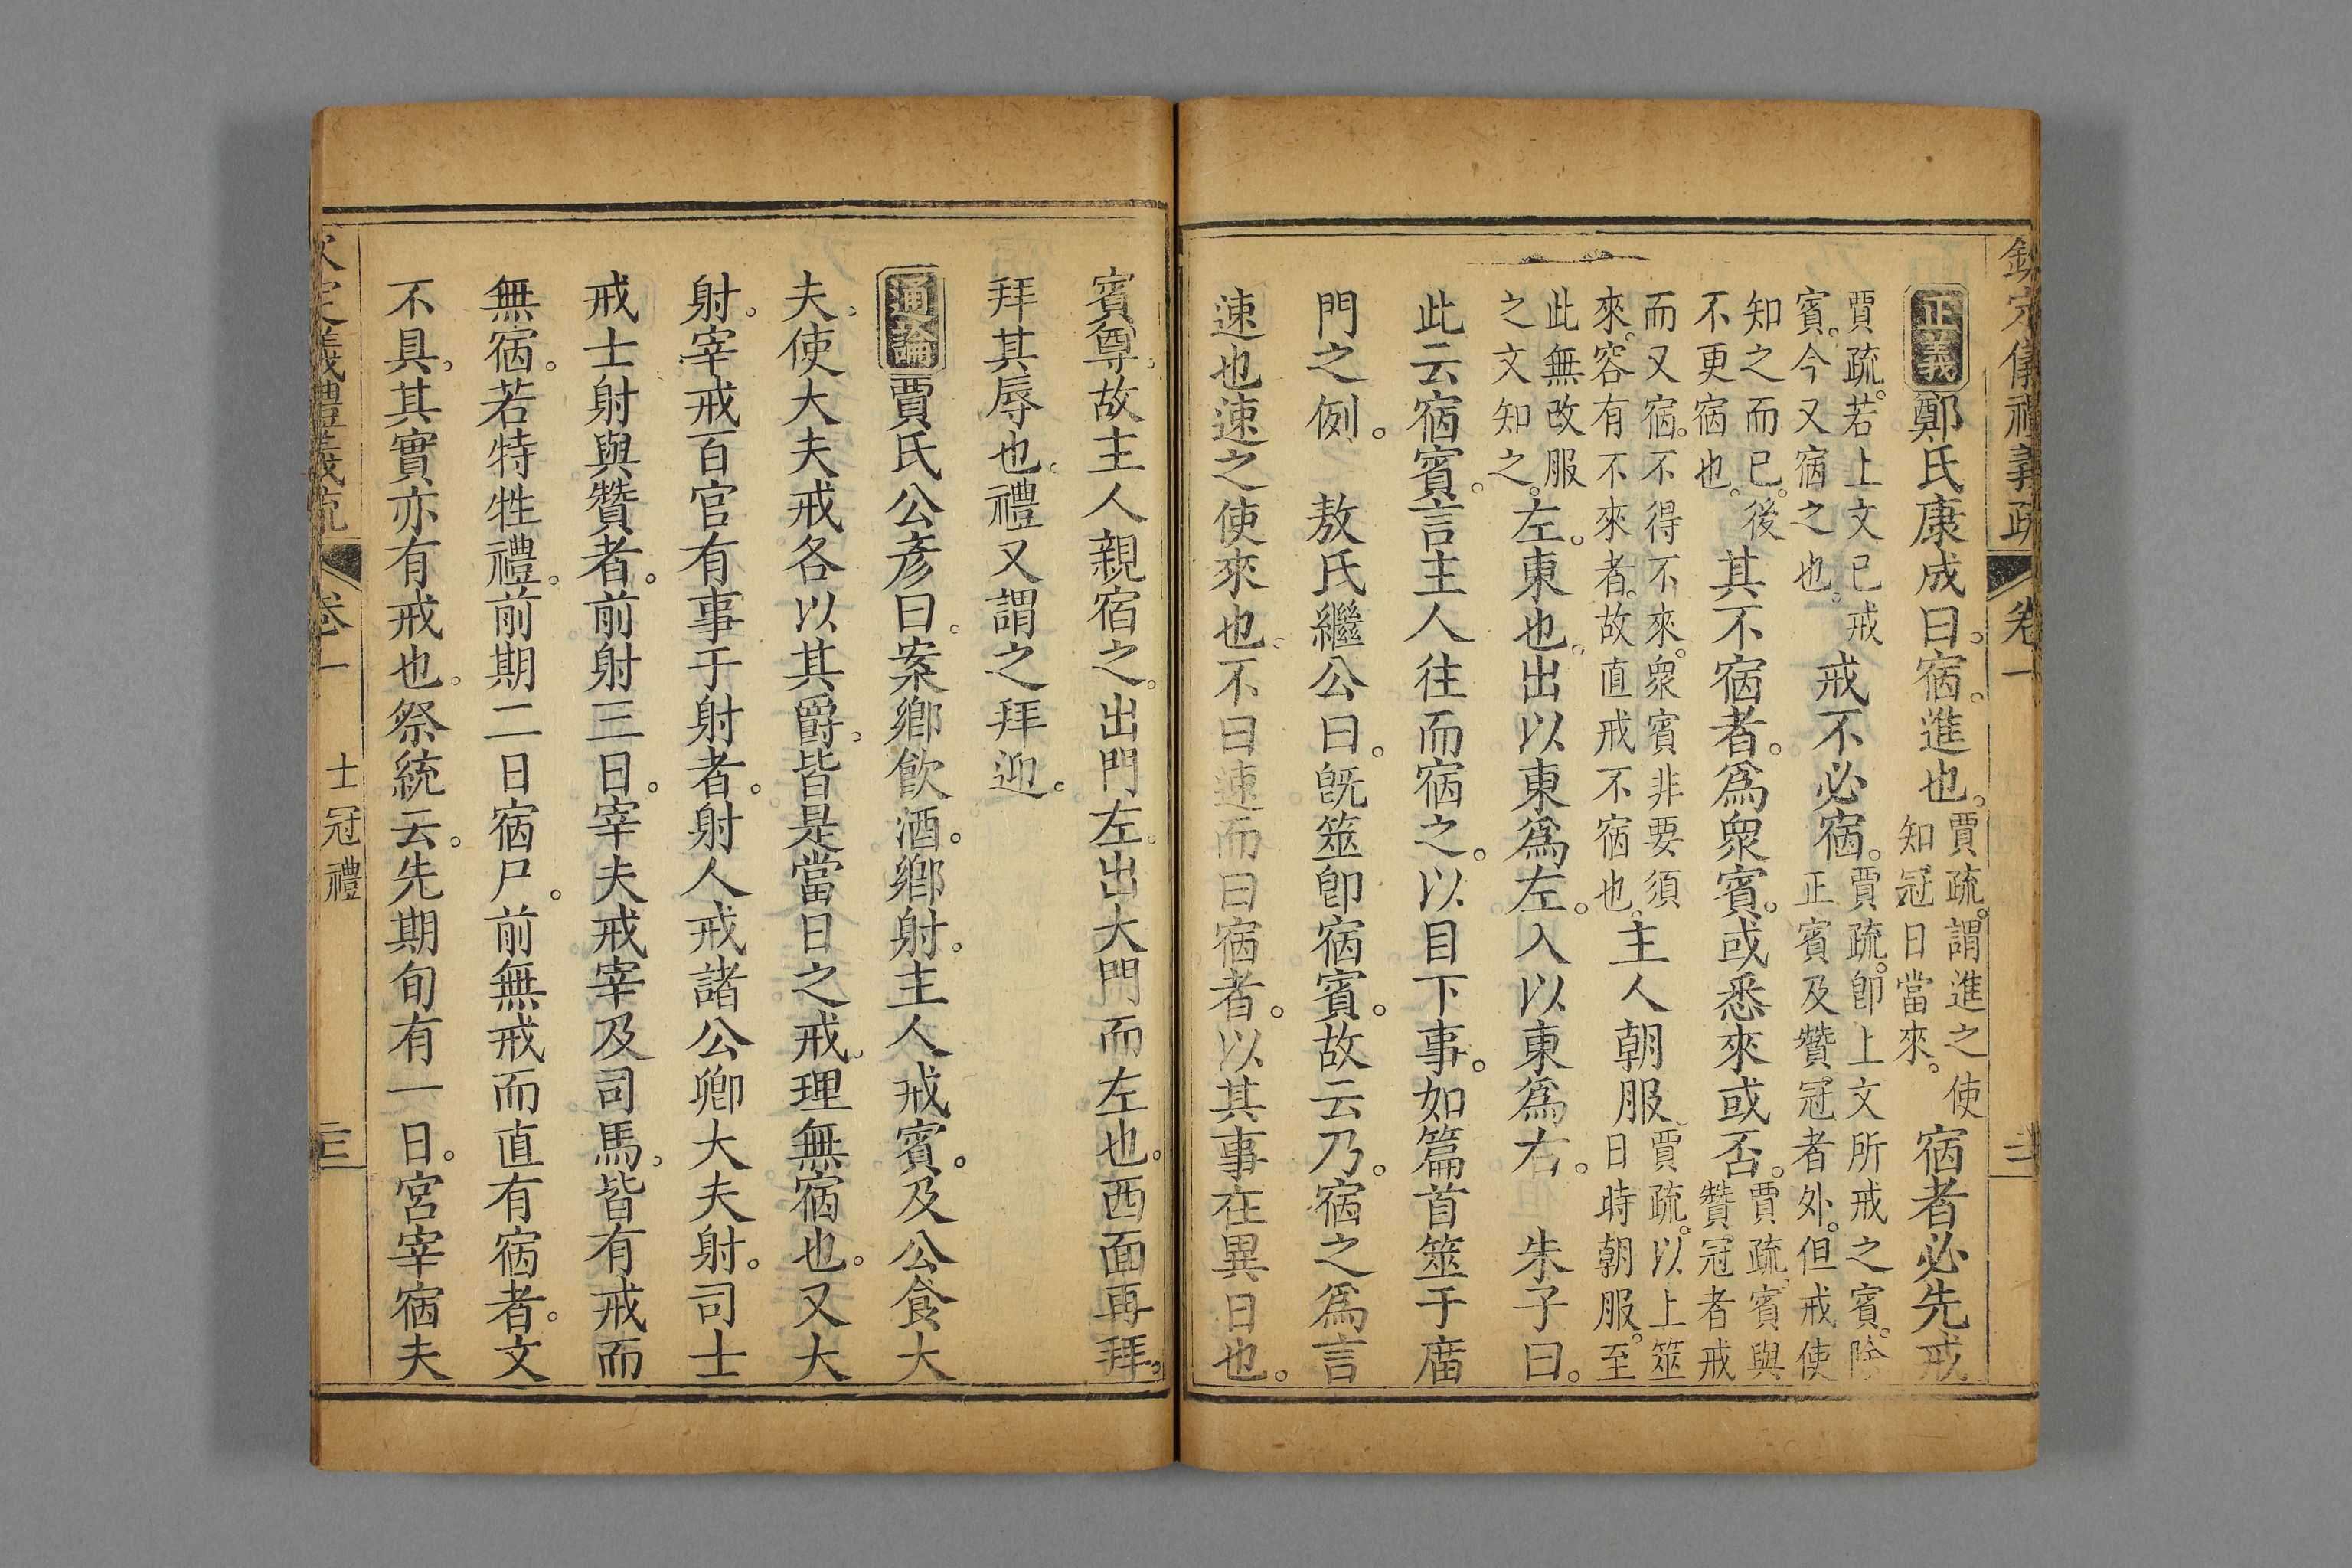 欽定儀禮義疏 卷一
正義 鄭氏康成曰。宿。進也。賈疏。謂進之使知冠日當來。宿者必先戒
賈疏。若上文已戒賓。今又宿之也。戒不必宿。賈疏。卽上文所戒之賓。除正賓及贊冠者外。但戒使
知之而已。後不更宿也。其不宿者。爲眾賓。或悉來或否。賈疏。賓與贊冠者戒
而又宿。不得不來。眾賓非要須來。容有不來者。故直戒不宿也。主人朝服賈疏。以上筮日時朝服。至
此無改服之文知之。左。東也。出以東爲左。入以東爲右。 朱子曰。
此云宿賓。言主人往而宿之。以目下事。如篇首筮于廟
門之例。 敖氏繼公曰。旣筮卽宿賓。故云乃。宿之爲言
速也速之使來也。不曰速而曰宿者。以其事在異日也。
賓尊。故主人親宿之。出門左。出大門而左也。西面再拜。
拜其辱也。禮又謂之拜迎。
通論 賈氏公彥曰。案鄉飲酒。鄉射。主人戒賓。及公食大
夫。使大夫戒各以其爵。皆是當日之戒。理無宿也。又大
射。宰戒百官有事于射者。射人戒諸公卿大夫射。司士
戒士射與贊者。前射三日。宰夫戒宰及司馬。皆有戒而
無宿。若特牲禮。前期二日宿尸。前無戒而直有宿者。文
不具。其實亦有戒也。祭統云。先期旬有一日。宮宰宿夫
欽定儀禮義疏 卷一 士冠禮 三